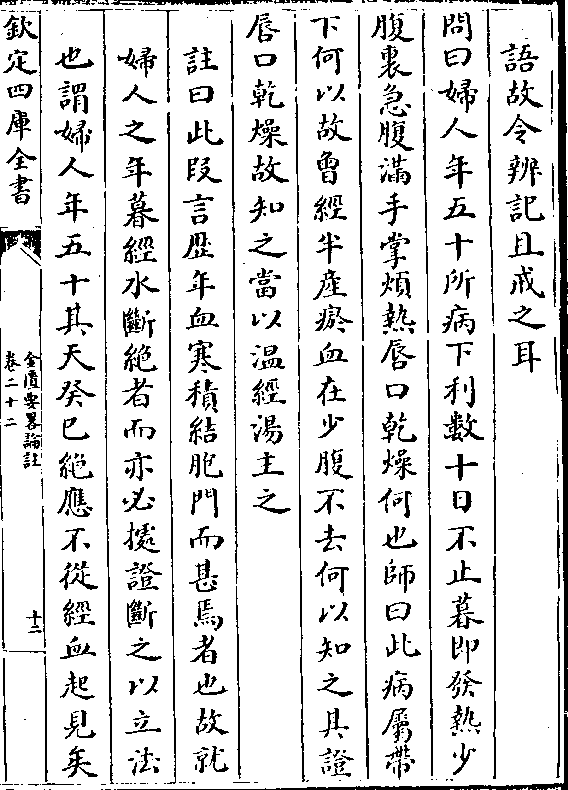 語故令辨記且戒之耳
問曰婦人年五十所病下利數十日不止暮即發熱少
腹裏急腹滿手掌煩熱唇口乾燥何也師曰此病屬帶
下何以故曾經半產瘀血在少腹不去何以知之其證
唇口乾燥故知之當以温經湯主之
註曰此段言歷年血寒積結胞門而甚焉者也故就
婦人之年暮經水斷絕者而亦必據證斷之以立法
也謂婦人年五十其天癸已絕應不從經血起見矣
欽定四庫全書
金匱要畧論註
卷二十二
十二